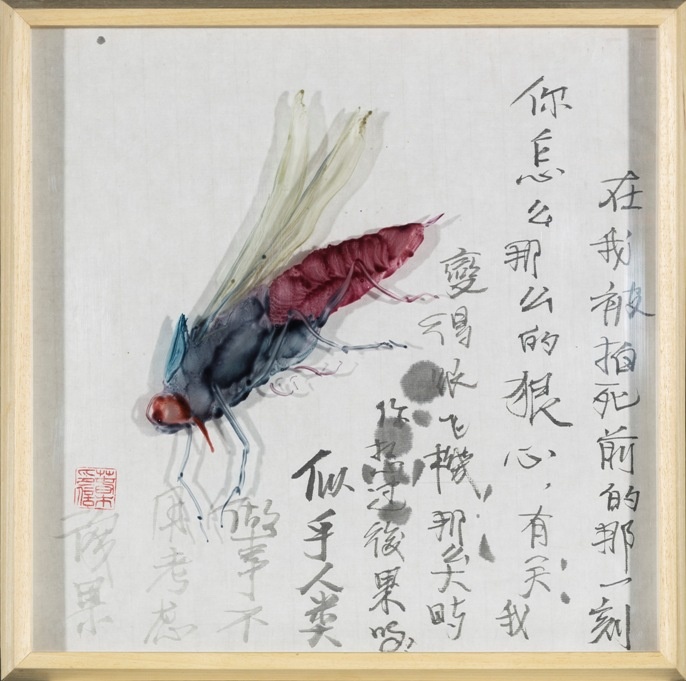 在我被拍死前的那一刻
你怎么那么的狠心，有一天我
變得跟飞機那么大時
你想过後果吗
似乎人类
做事不
用考虑
後果